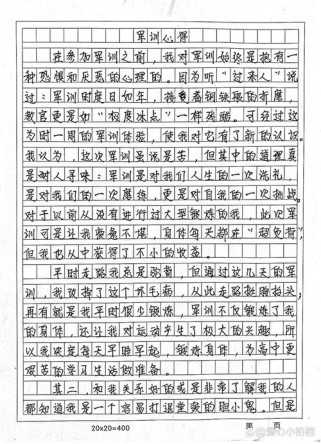 军训心得
在参加军训之前，我对军训始终是抱有一
种恐惧和厌恶的心理的。因为听“过来人”说
过：军训时度日如年，接受着钢铁般的折磨，
教官更是如“极度冰点”一样残酷。可经过这
为时一周的军训体验，使我对它有了新的认识。
我认为，这次军训虽说是苦，但其中的道理真
是耐人寻味：军训是对我们人生的一次洗礼，
是对我们的一次磨练，更是对自我的一次挑战。
对于以前从没有进行过大型锻炼的我，此次军
训可是让我疲惫不堪，身体每天都在“超负荷”
但我也从中获得了不小的收益。
平时走路我总是驼背，但通过这几天的军
训，我改掉了这个坏毛病，从此走路挺胸抬头，
再有就是我平时很少锻炼，军训不仅锻炼了我
的身体，还让我对运动产生了极大的兴趣，所
以我决定每天早睡早起，锻炼身体，为高中更
艰苦的学习生活做准备。
其二，和我关系好的或是非常了解我的人
都知道我是一个容易打退堂鼓的胆小鬼。但是
20×20=400
第 页